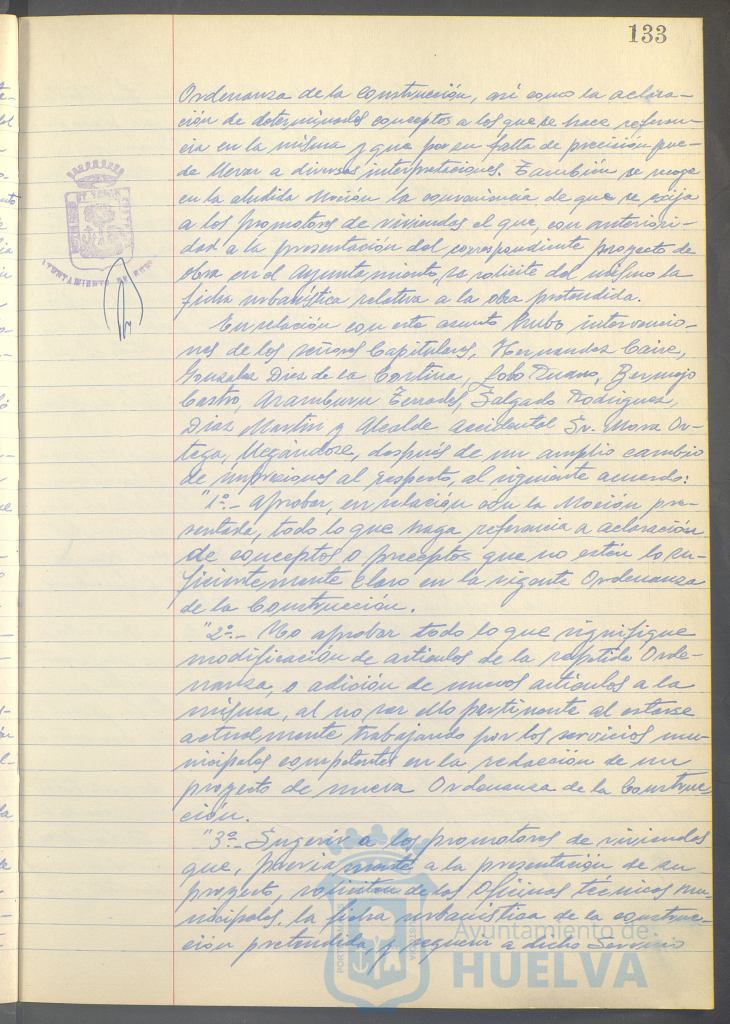 133
Ordenanza de la Construcción, así como la aclara-
ción de determinados conceptos a los que se hace referen-
cia en la misma y que por su falta de precisión pue-
de llevar a diversas interpretaciones. También se recoge
en la aludida Moción la conveniencia de que se exija
a los promotores de viviendas el que, con anteriori-
dad a la presentación del correspondiente proyecto de
obra en el Ayuntamiento, se solicite del mismo la
ficha urbanística relativa a la obra pretendida.
En relación con este asunto hubo intervencio-
nes de los señores Capitulares, Hernandez Caire,
Gonzalez Diez de la Cortina, Lobo Ruano, Bermejo
Castro, Aramburu Terrades, Salgado Rodriguez,
Diaz Martin y Alcalde accidental Sr. Mora Or-
tega, llegándose, después de un amplio cambio
de impresiones al respecto, al siguiente acuerdo:
"1º.- Aprobar, en relación con la Moción pre-
sentada, todo lo que haga referencia a aclaración
de conceptos o preceptos que no estén lo su-
ficientemente claro en la vigente Ordenanza
de la Construcción.
"2º.- No aprobar todo lo que signifique
modificación de articulos de la repetida Orde-
nanza, o adición de nuevos articulos a la
misma, al no ser ello pertinente al estarse
actualmente trabajando por los servicios mu-
nicipales competentes en la redacción de un
proyecto de nueva Ordenanza de la Construc-
ción.
"3º.- Sugerir a los promotores de viviendas
que, previamente a la presentación de su
proyecto, soliciten de las Oficinas técnicas mu-
nicipales, la ficha urbanística de la construc-
ción pretendida, y requerir a dicho Servicio
AYUNTAMIENTO DE
Ayuntamiento de
HUELVA